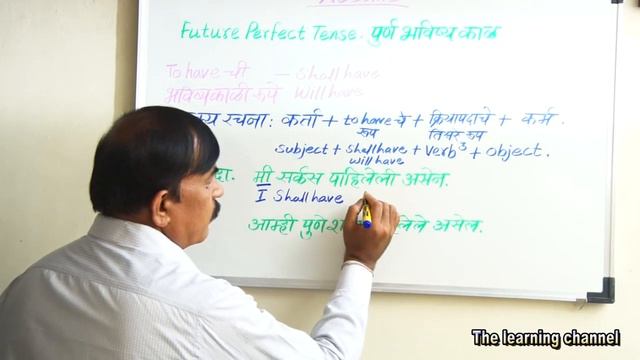 Future Perfect Tense. पुर्ण भविष्य काळ
To have ची — Shall have
भविष्यकाळी रूपे Will have
रचना: कर्ता + to have चे + क्रियापदाचे + कर्म.
रूप तिसरे रूप
Subject + Shall have + Verb³ + Object.
will have
दा. मी सर्कस पाहिलेली असेन.
I Shall have
आम्ही पुणे असेल.
The learning channel